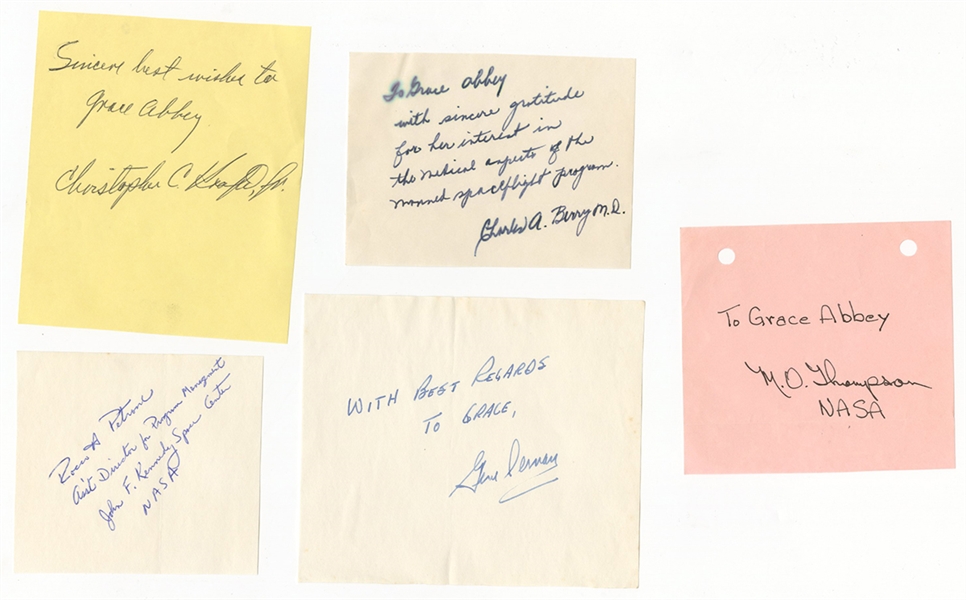 Sincere best wishes to
Grace Abbey
Christopher C. Kraft, Jr.
To Grace Abbey
with sincere gratitude
for her interest in
the medical aspects of the
manned spaceflight program.
Charles A. Berry M.D.
To Grace Abbey
M. O. Thompson
NASA
Rocco A Petrone
Ass't Director for Program Management
John F. Kennedy Space Center
NASA
WITH BEST REGARDS
TO GRACE,
Gene Cernan